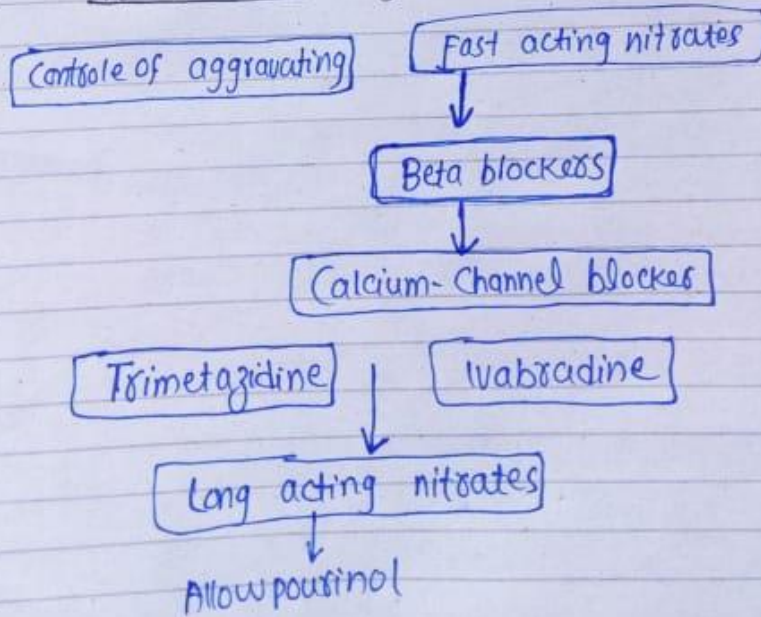 Controle of aggravating
Fast acting nitrates
Beta blockers
Calcium-Channel blocker
Trimetazidine
Ivabradine
Long acting nitrates
Allowpourinol